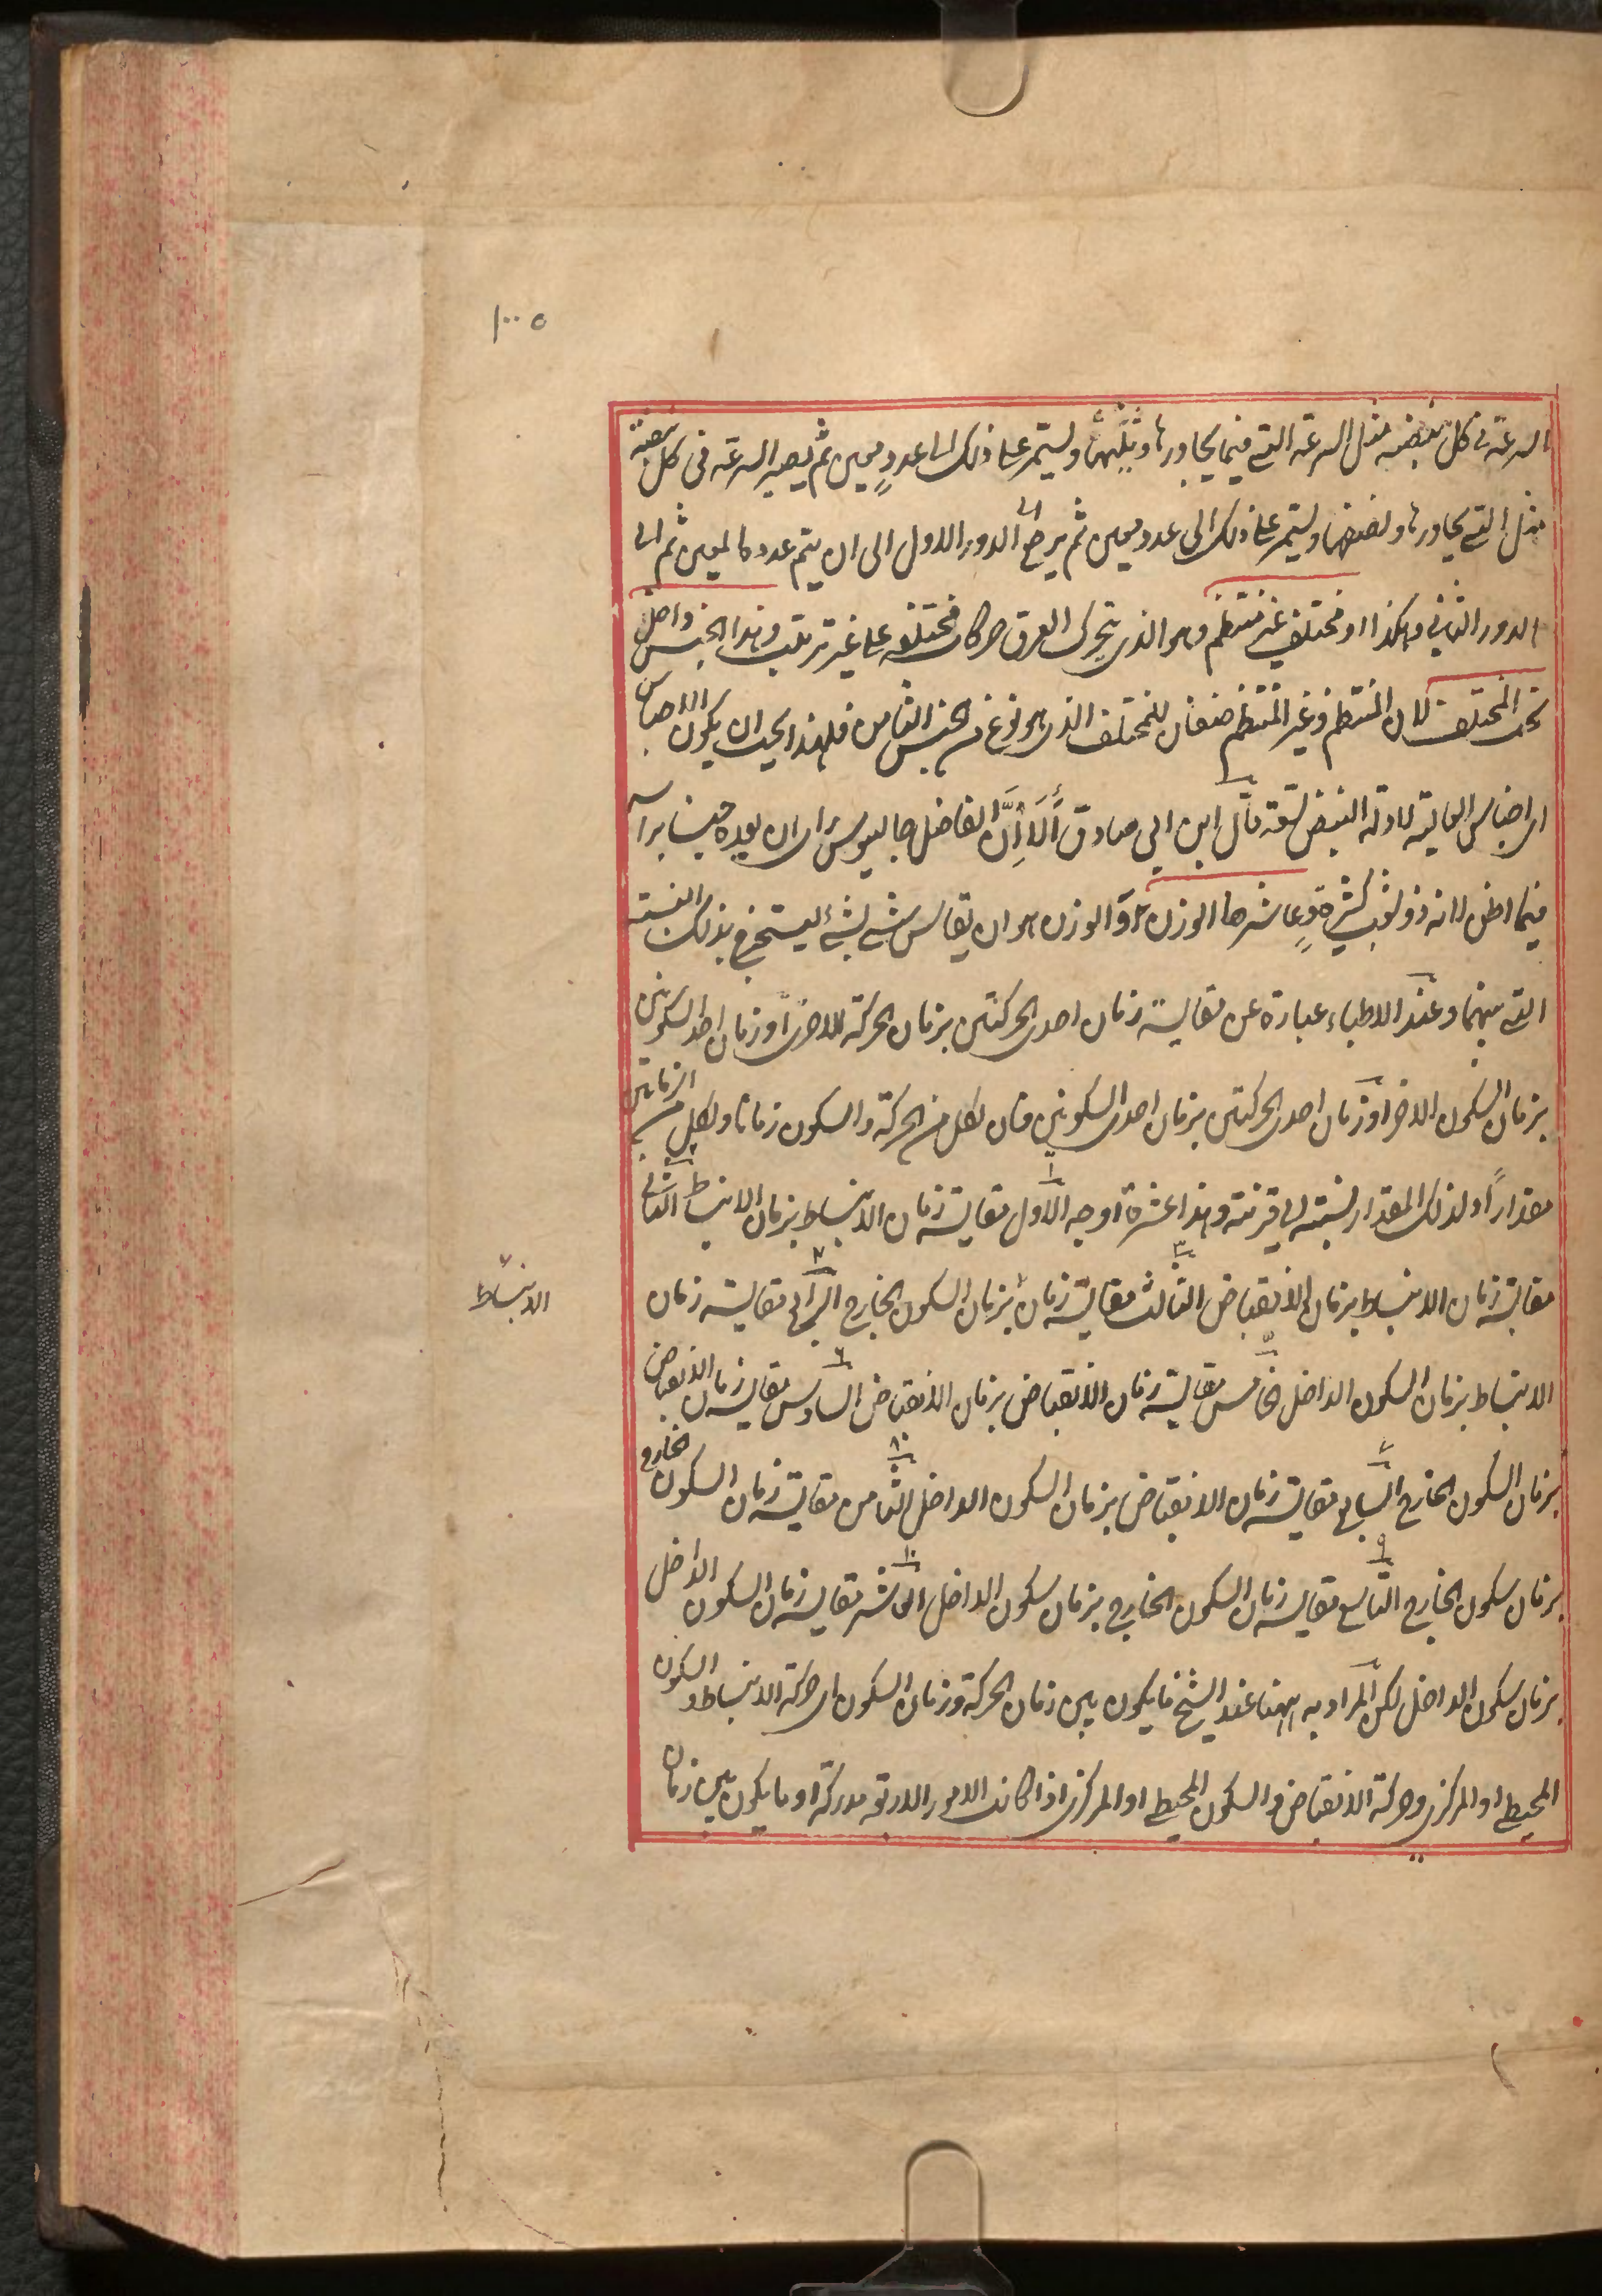 ١٠٠٥
السرعة فى كل نبضه مثل السرعة التى فيما يجاورها وثلثها ويستمر على ذلك الى عددٍ معين ثم يصير السرعة فى كل نبضة
مثل التى يجاورها ونصفها ويستمر على ذلك الى عدد معين ثم يرجع الى الدور الاول الى ان يتم عدده المعين ثم الى
الدور الثانى وهكذا او مختلف غير منتظم وهو الذى يتحرك العرق حركات مختلفه على غير ترتيب وهذا الجنس داخل
تحت المختلف لان المنتظم وغير المنتظم صنفان للمختلف الذى هو نوع من الجنس الثامن فلهذا يجب ان يكون الاجناس
اى اجناس العالية لادلة النبض تسعة قال ابن ابى صادق أَلَا إِنَّ الفاضل جالينوس راى ان يعده جنسا براسه
فيما اظن لانه ذو شعب كثيرةٍ وعاشرها الوزن والوزن هو ان يقاس شئ بشئ ليستخرج بذلك النسبته
التى بينهما وعند الاطباء عبارة عن مقايسة زمان احدى الحركتين بزمان الحركة الاخرى او زمان احد السكونين
بزمان السكون الاخر او زمان احدى الحركتين بزمان احدى السكونين فان لكل من الحركة والسكون زمانا ولكل من الزمانين
مقداراً ولذلك المقدار نسبته الى قرينته وهذا عشرة اوجه الاول مقايسة زمان الانبساط بزمان الانبساط الثانى
مقايسة زمان الانبساط بزمان الانقباض الثالث مقايسة زمان بزمان السكون الخارج الرابع مقايسه زمان
الانبساط
الانبساط بزمان السكون الداخل الخامس مقايسة زمان الانقباض بزمان الانقباض السادس مقايسة زمان الانقباض
بزمان السكون الخارج السابع مقايسة زمان الانقباض بزمان السكون الداخل الثامن مقايسة زمان السكون الخارج
بزمان سكون الخارج التاسع مقايسة زمان السكون الخارج بزمان سكون الداخل العاشر مقايسة زمان السكون الداخل
بزمان سكون الداخل لكن المراد به ههنا عند الشيخ ما يكون بين زمان الحركة وزمان السكون اى حركة الانبساط والسكون
المحيطى او المركزى وحركة الانقباض والسكون المحيطى او المركزى اذا كانت الامور الاربعة مدركة او ما يكون بين زمان